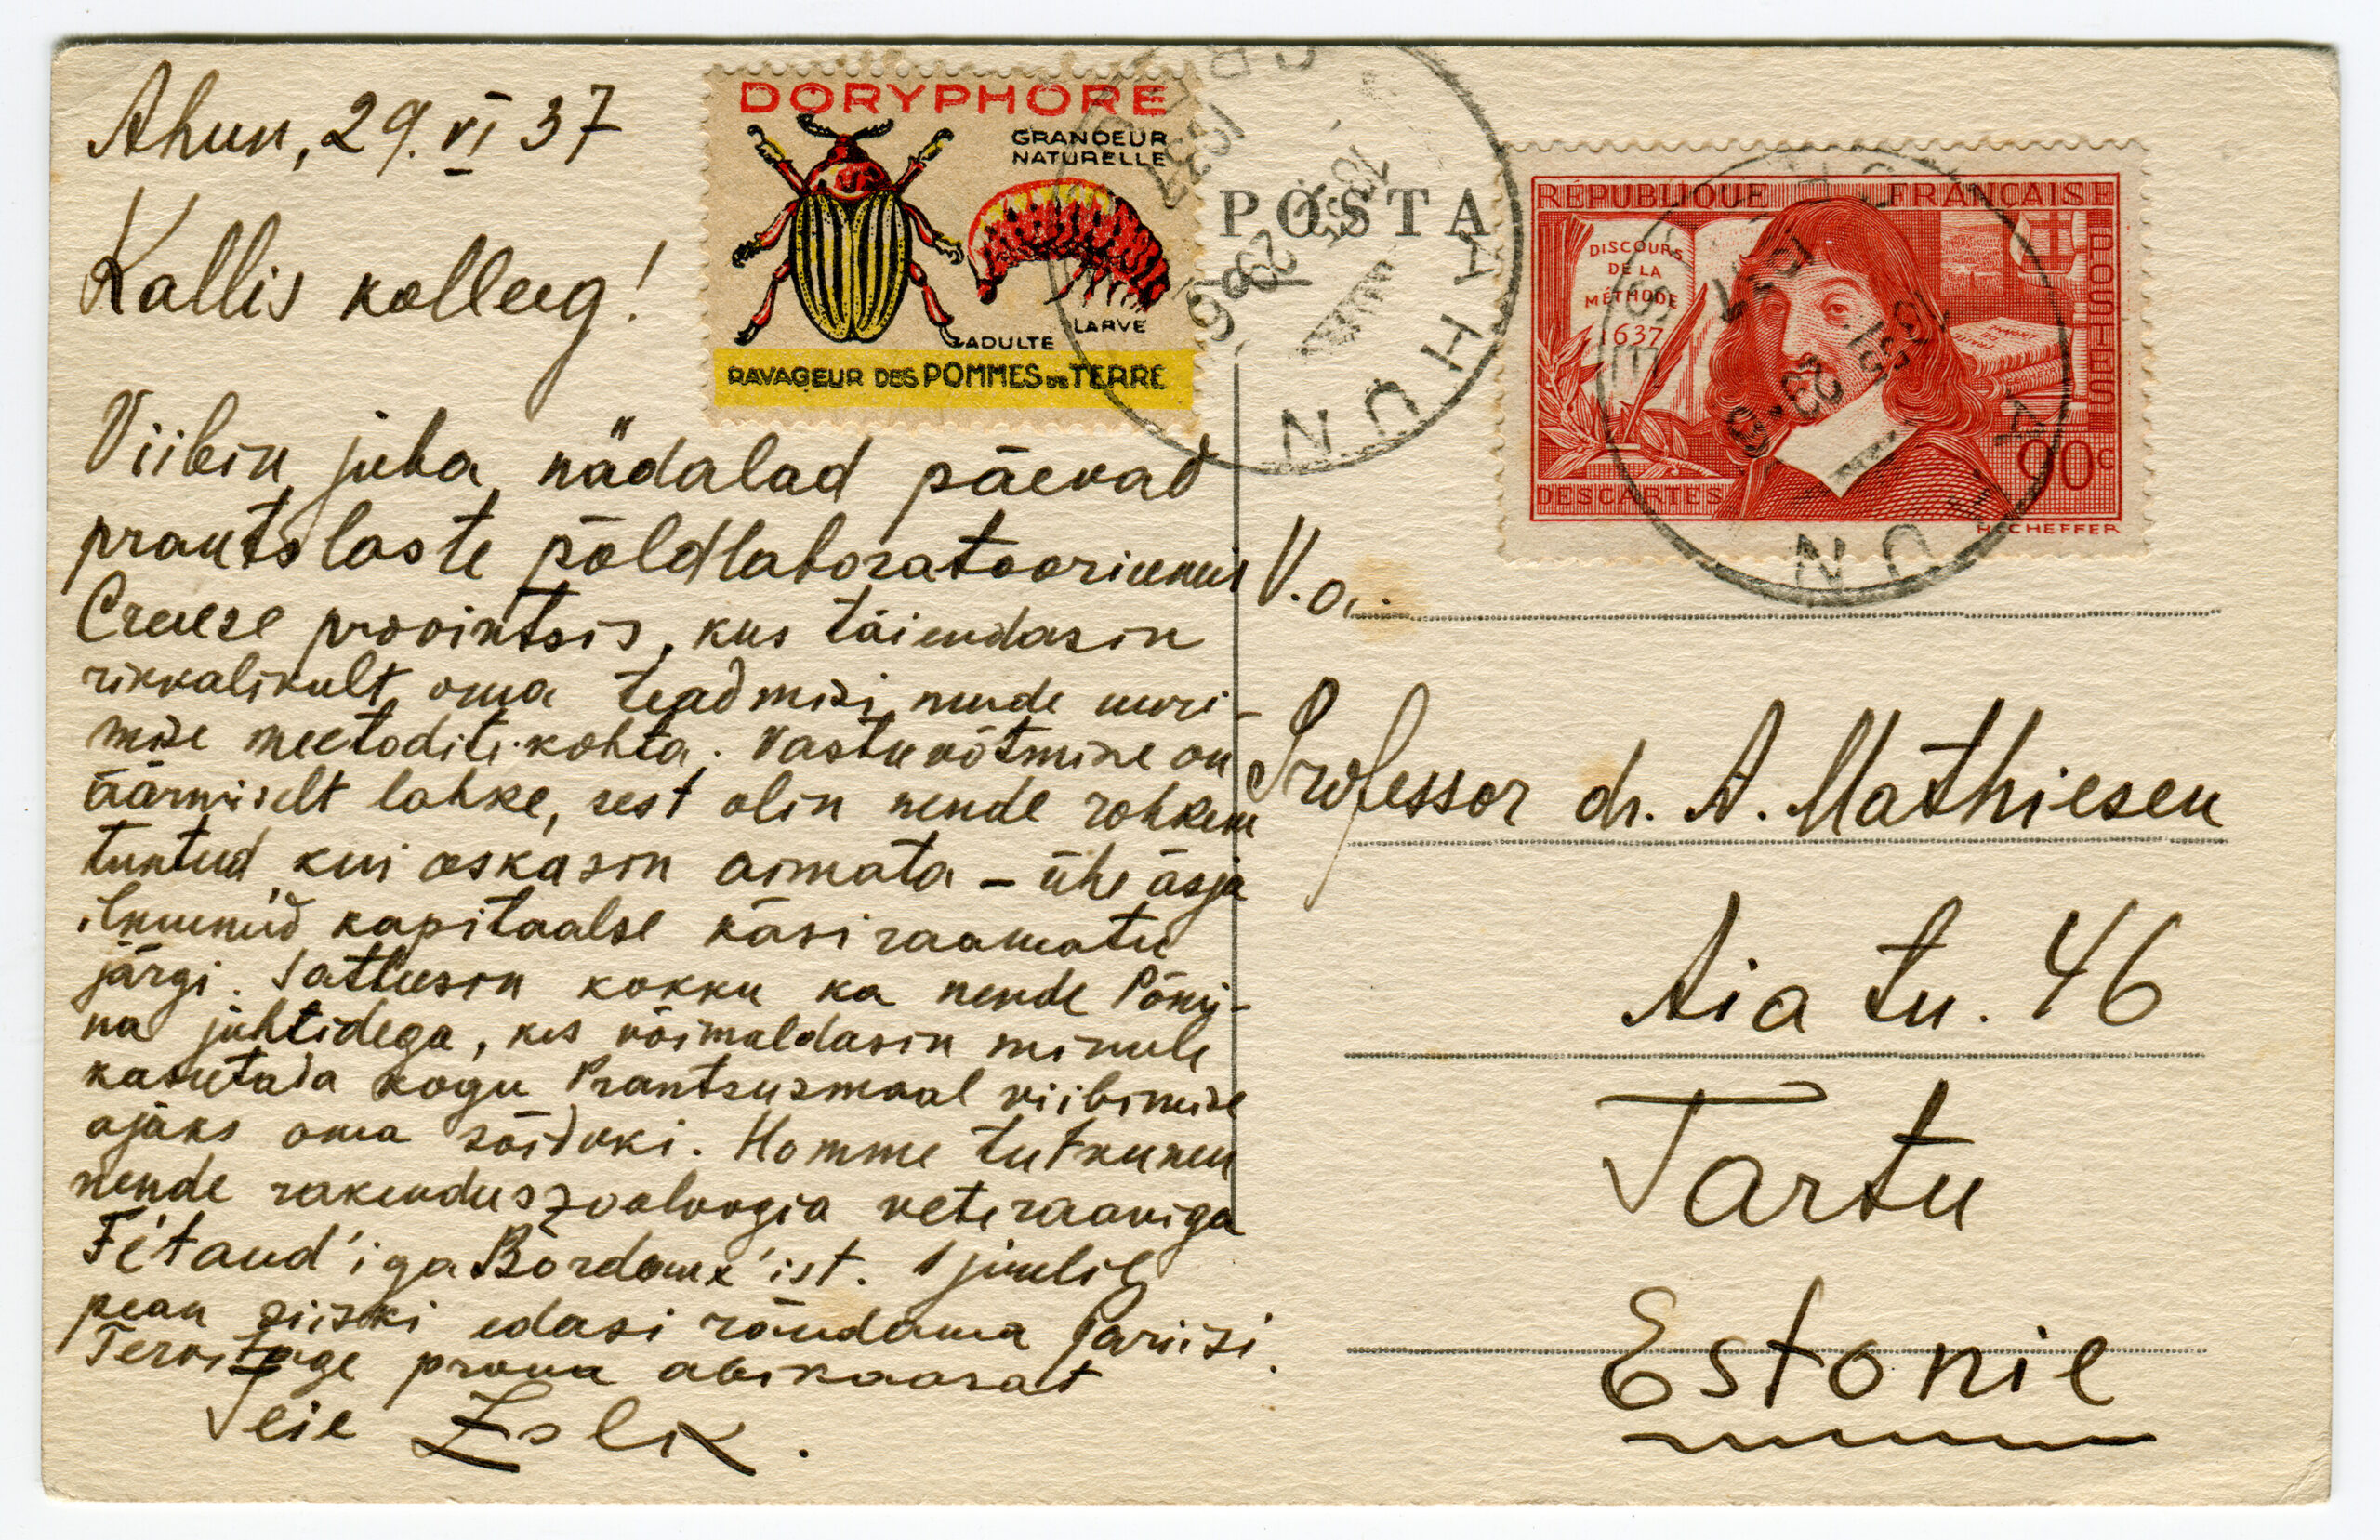 Ahun, 29. VI 37
Kallis kolleeg!
Viibin juba nädalad päevad
prantslaste põldlaboratooriumis
Creuese provintsis, kus täiendasin
rikkalikult oma teadmisi nende uuri-
mise meetodite kohta. Vastuvõtmine on
äärmiselt lahke, sest olin nende rohkem
tuntud kui oskasin aimata – ühe äsja
ilmunud kapitaalse käsiraamatu
järgi. Sattusin kokku ka nende
na juhtidega, kes võimaldasin minule
kasutada kogu Prantsusmaal viibimise
ajaks oma sõiduki. Homme tutvunen
nende rakenduszooloogia veteraaniga
Fétaud'iga Bordeaux'ist. 1 juulil
pean siiski edasi rändama Pariisi.
Tervitage proua abikaasat
Teie
DORYPHORE
GRANDEUR
NATURELLE
LARVE
ADULTE
RAVAGEUR DES POMMES DE TERRE
POSTA
AHUN
1937
29
RÉPUBLIQUE FRANÇAISE
POSTES
DISCOURS
DE LA
MÉTHODE
1637
DESCARTES
90c
H. CHEFFER
AHUN
V.a.
Professor dr. A. Mathiesen
Aia tn. 46
Tartu
Estonie